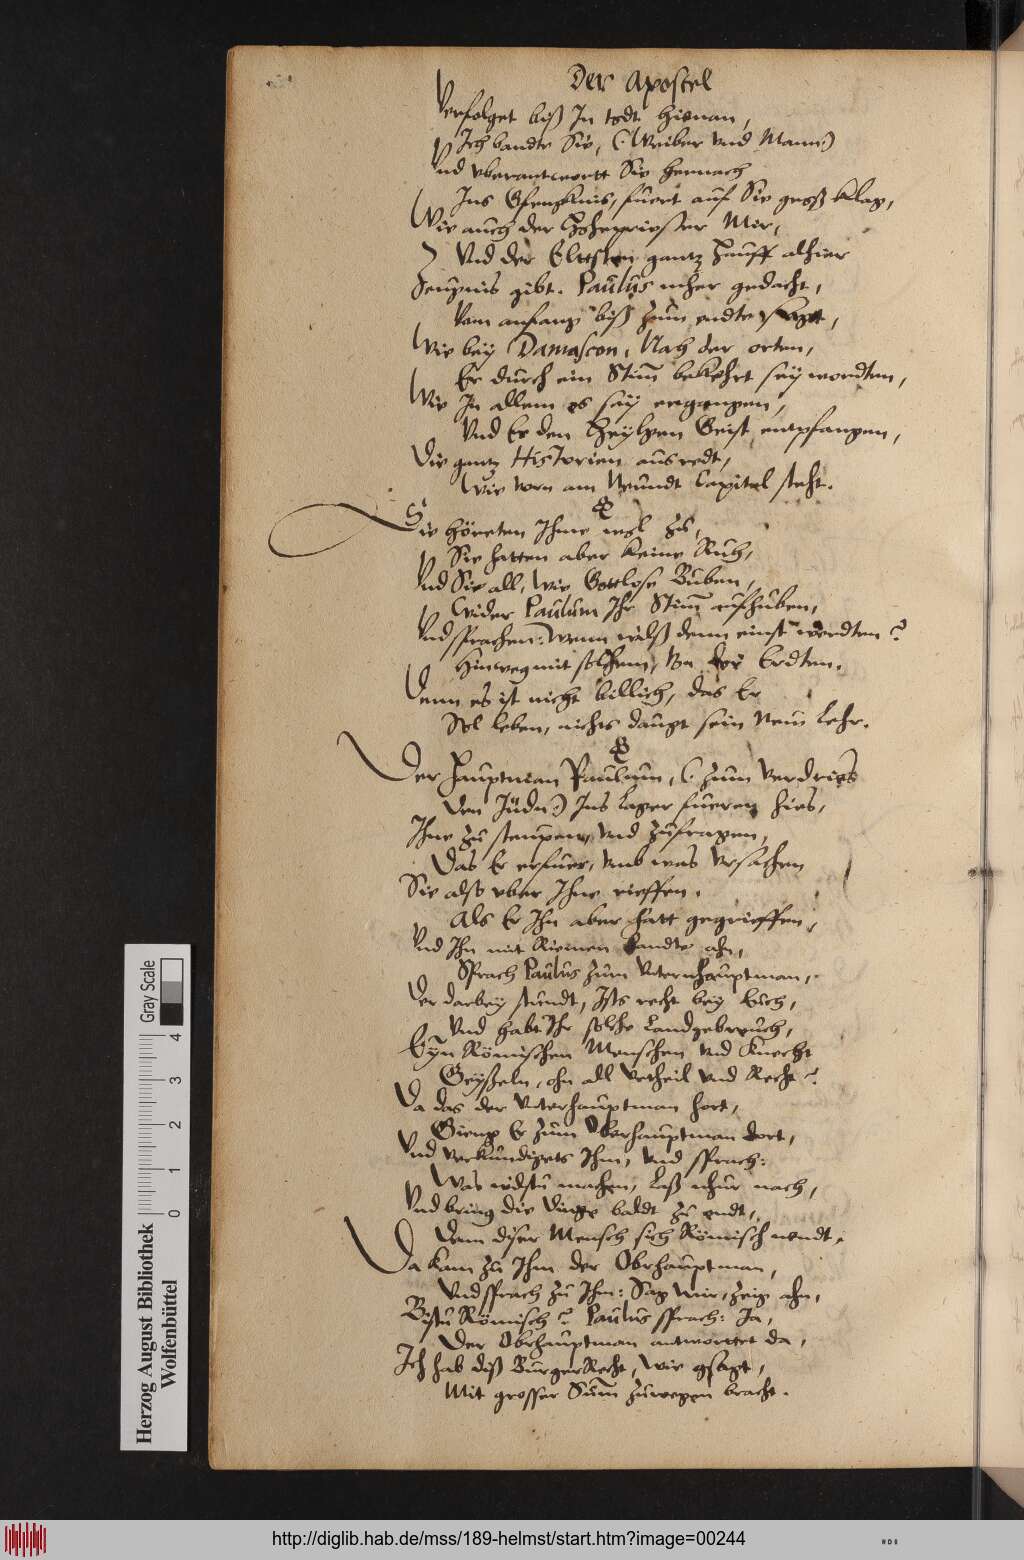 Der Apostel
Verfolget biß In todt hienan,
Ich bandte Sie, (Weiber vnd Mann)
Vnd vberantwortt Sie hernach
Ins Gfengknis, fuert auf Sie groß klag,
Wie auch der Hohepriester Mir,
Vnd der Elltsten gantz Hauff alhier
Zeugnis gibt. Paulus mher gedacht,
Vom anfang biß zum endte sagt,
Wie bey Damascon, Nach der orten,
Er durch ein Stim̄ bekehrt sey wordten,
Wie In allem es sey ergangen,
Vnd Er den Heyligen Geist entpfangen,
Die gantz Historien ausredt,
Wie vorn am Neundt Capitel steht.
Sie höreten Ihme wol zu,
Sie hatten aber keine Ruh,
Vnd Sie all, wie Gottlose Buben,
Wider Paulum Ihr Stim̄ aufhuben,
Vnd sprachen: Wenn wils denn einst werdten?
Hinweg mit solchem, von der Erdten.
Denn es ist nicht billich, das Er
Sol leben, nichts daugt sein New Lehr.
Der Hauptman Paulum, (zum verdries
den Jüdn) Ins Lager fueren hies,
Ihne zu steupen, vnd zufragen,
Das Er erfuer, vmb was vrsachen
Sie also vber Ihne rieffen.
Als Er Ihn aber hatt gegrieffen,
Vnd Ihn mit Riemen bandte ahn,
Sprach Paulus zum Vnterhauptman,
Der darbey stundt, Ists recht bey Euch,
Vnd habt Ihr solche Landgebreuch,
Eyn Römischen Menschen vnd Knecht
Geyßeln, ohn all Vrtheil vnd Recht?
Da das der Vnterhauptman hort,
Gieng Er zum Oberhauptman dort,
Vnd verkundigets Ihm, vnd sprach:
Was wilstu machen, Laß nhur nach,
Vnd bring die dinge baldt zu endt,
Denn diser Mensch sich Römisch nendt.
Da kam zu Ihm der Obrhauptman,
Vnd sprach zu Ihm: Sag mir, zeig ahn,
Bistu Römisch? Paulus sprach: Ja,
Der Obrhauptman antworttet da,
Ich hab diß BurgerRecht, wie gsagt,
Mit grosser Sum̄ zuwegen bracht.
Herzog August Bibliothek
Wolfenbüttel
Gray Scale
0 1 2 3 4
http://diglib.hab.de/mss/189-helmst/start.htm?image=00244